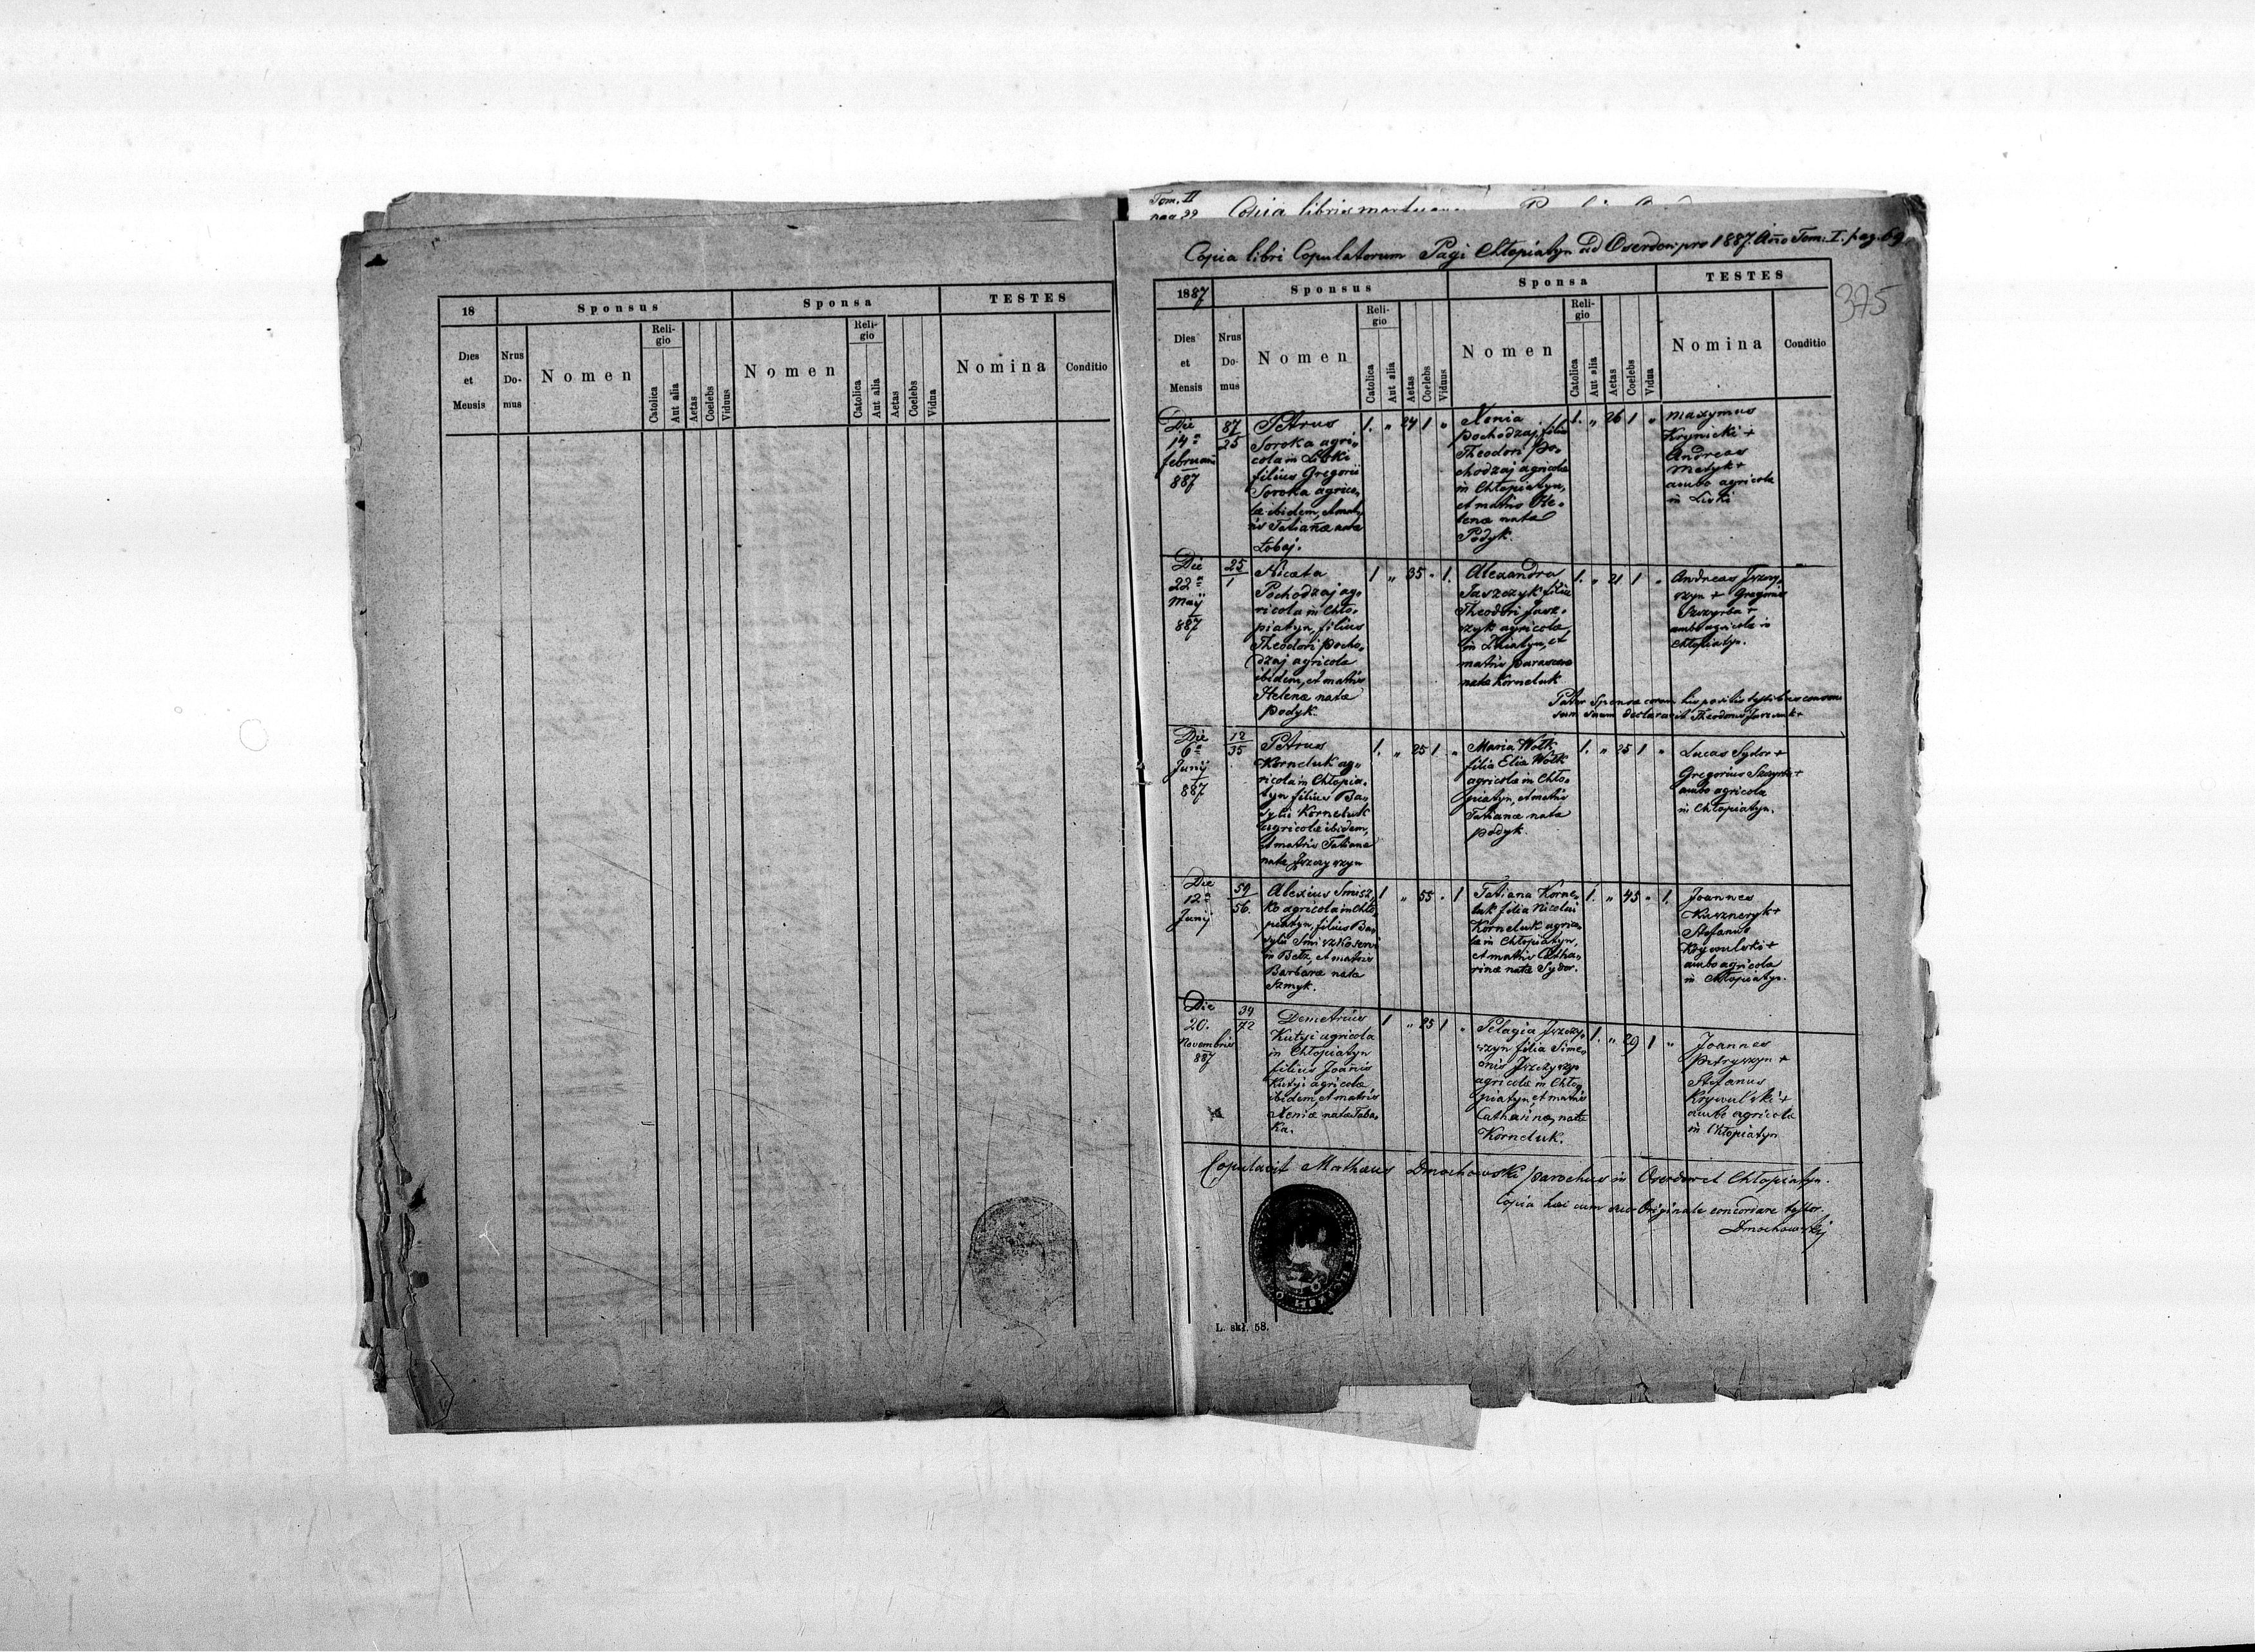 18
Sponsus
Sponsa
TESTES
Dies
et
Mensis
Nrus
Do-
mus
Nomen
Reli-
gio
Catolica
Aut alia
Aetas
Coelebs
Viduus
Nomen
Reli-
gio
Catolica
Aut alia
Aetas
Coelebs
Vidua
Nomina
Conditio
Tom. II
pag 22
Copia libri Copulatorum Pagi Chłopiatyn ad Oserdow pro 1887. Año Tom. I. pag. 69.
375
1887
Sponsus
Sponsa
TESTES
Dies
et
Mensis
Nrus
Do-
mus
Nomen
Reli-
gio
Catolica
Aut alia
Aetas
Coelebs
Viduus
Nomen
Reli-
gio
Catolica
Aut alia
Aetas
Coelebs
Vidua
Nomina
Conditio
Die
14a
februarii
887
87
25
Petrus
Soroka agri-
cola in Liski
filius Gregorii
Soroka agrico-
læ ibidem, et mat-
ris Tatianæ nata
Łobaj.
1. „ 24 1 „
Xenia
Pochodzaj, filia
Theodori Po-
chodzaj agricolæ
in Chłopiatyn,
et matris He-
lenæ nata
Podyk.
1. „ 26 1 „
Maxymus
Krynicki +
Andreas
Matyk +
ambo agricolæ
in Liski
Die
22a
Maij
887
25
1
Niceta
Pochodzaj ag-
ricola in Chło-
piatyn, filius
Theodori Pocho-
dzaj agricolæ
ibidem, et matris
Helenæ nata
Podyk.
1 „ 35 „ 1.
Alexandra
Jaszczyk filia
Theodori Jasz-
czyk agricolæ
et
matris
nata Korneluk
1. „ 21 1 „
Andreas
+ Gregorius
+
ambo agricolæ in
Chłopiatyn.
Pater Sponsæ coram his
suum declaravit Theodorus +
Die
6a
Junij
887
12
35
Petrus
Korneluk ag-
ricola in Chłopia-
tyn filius Ba-
sylii Korneluk
agricolæ ibidem,
et matris Tatianæ
nata
1. „ 25 1 „
Maria Wołk
filia Eliæ Wołk
agricolæ in Chło-
piatyn, et matris
Tatianæ nata
Podyk.
1. „ 25 1 „
Lucas Sydor +
Gregorius +
ambo agricolæ
in Chłopiatyn.
Die
12a
Junij
59
56.
Alexius Smisz-
ko agricola in Chło-
piatyn, filius Ba-
sylii Smiszko
in Bełz, et matris
Barbaræ nata
Szmyk.
1 „ 55 „ 1
Tatiana Korne-
luk filia Nicolai
Korneluk agrico-
læ in Chłopiatyn,
et matris Catha-
rinæ nata Sydor.
1. „ 45 „ 1.
Joannes
Kuszneryk +
Stefanus
Krywulski +
ambo agricolæ
in Chłopiatyn.
Die
20.
Novembris
887
34
72
Demetrius
Kutyi agricola
in Chłopiatyn
filius Joanis
Kutyi agricolæ
ibidem, et matris
Xeniæ nata Saba-
ka.
1 „ 25 1 „
Pelagia
filia Sime-
onis
agricolæ in Chło-
piatyn, et matris
Catharinæ, nata
Korneluk.
1. „ 29 1 „
Joannes
Petryszyn +
Stefanus
Krywulski +
ambo agricolæ
in Chłopiatyn
Copulavit Mathæus Dmochowski parochus in Oserdow et Chłopiatyn.
Copia hæc cum suo Originale concordare testor.
Dmochowskij
L. skł. 58.